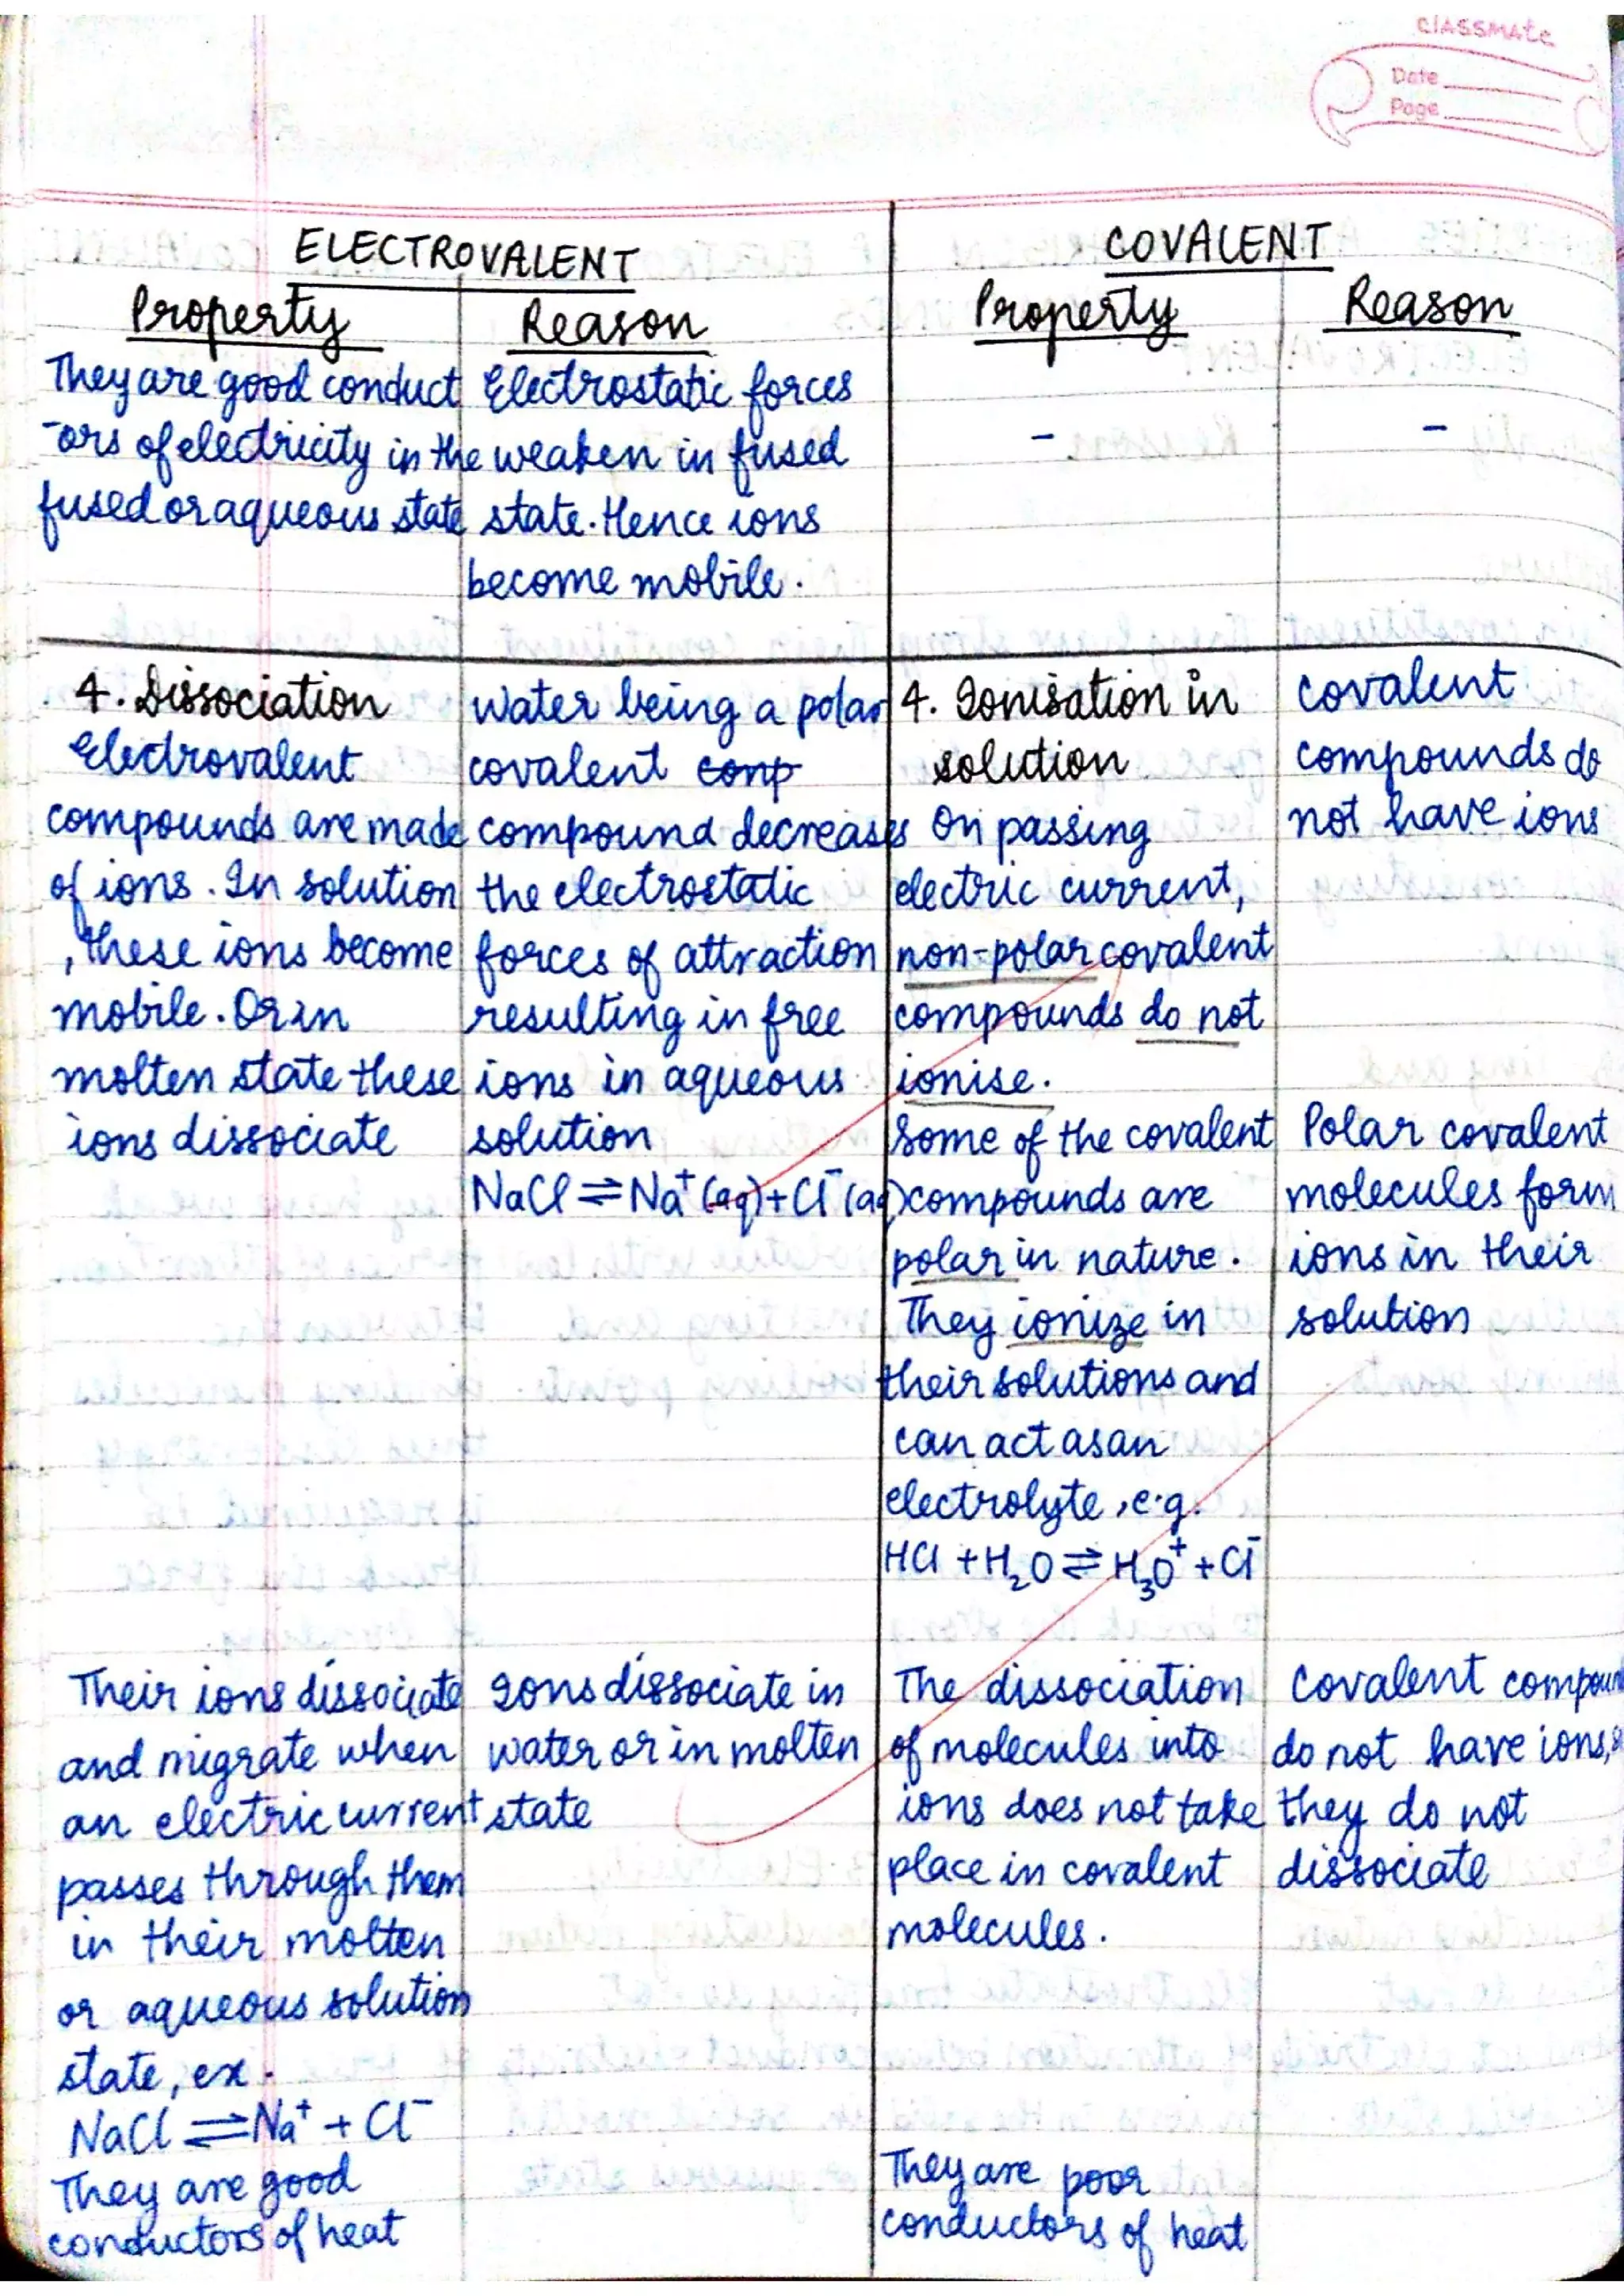 classmate
Date
Page
ELECTROVALENT
Property
Reason
They are good conduct
-ors of electricity in the
fused or aqueous state
Electrostatic forces
weaken in fused
state. Hence ions
become mobile.
COVALENT
Property
Reason
-
-
4. Dissociation
Electrovalent
compounds are made
of ions. In solution
, these ions become
mobile. Or in
molten state these
ions dissociate
Water being a polar
covalent comp
compound decreases
the electrostatic
forces of attraction
resulting in free
ions in aqueous
solution
NaCl ⇌ Na⁺ (aq) + Cl⁻ (aq)
4. Ionisation in
solution
On passing
electric current,
non-polar covalent
compounds do not
ionise.
Some of the covalent
compounds are
polar in nature.
They ionize in
their solutions and
can act as an
electrolyte, e.g.
HCl + H₂O ⇌ H₃O⁺ + Cl⁻
Covalent
compounds do
not have ions
Polar covalent
molecules form
ions in their
solution
Their ions dissociate
and migrate when
an electric current
passes through them
in their molten
or aqueous solution
state, ex.
NaCl ⇌ Na⁺ + Cl⁻
They are good
conductors of heat
Ions dissociate in
water or in molten
state
The dissociation
of molecules into
ions does not take
place in covalent
molecules.
They are poor
conductors of heat
Covalent
do not have ions,
they do not
dissociate